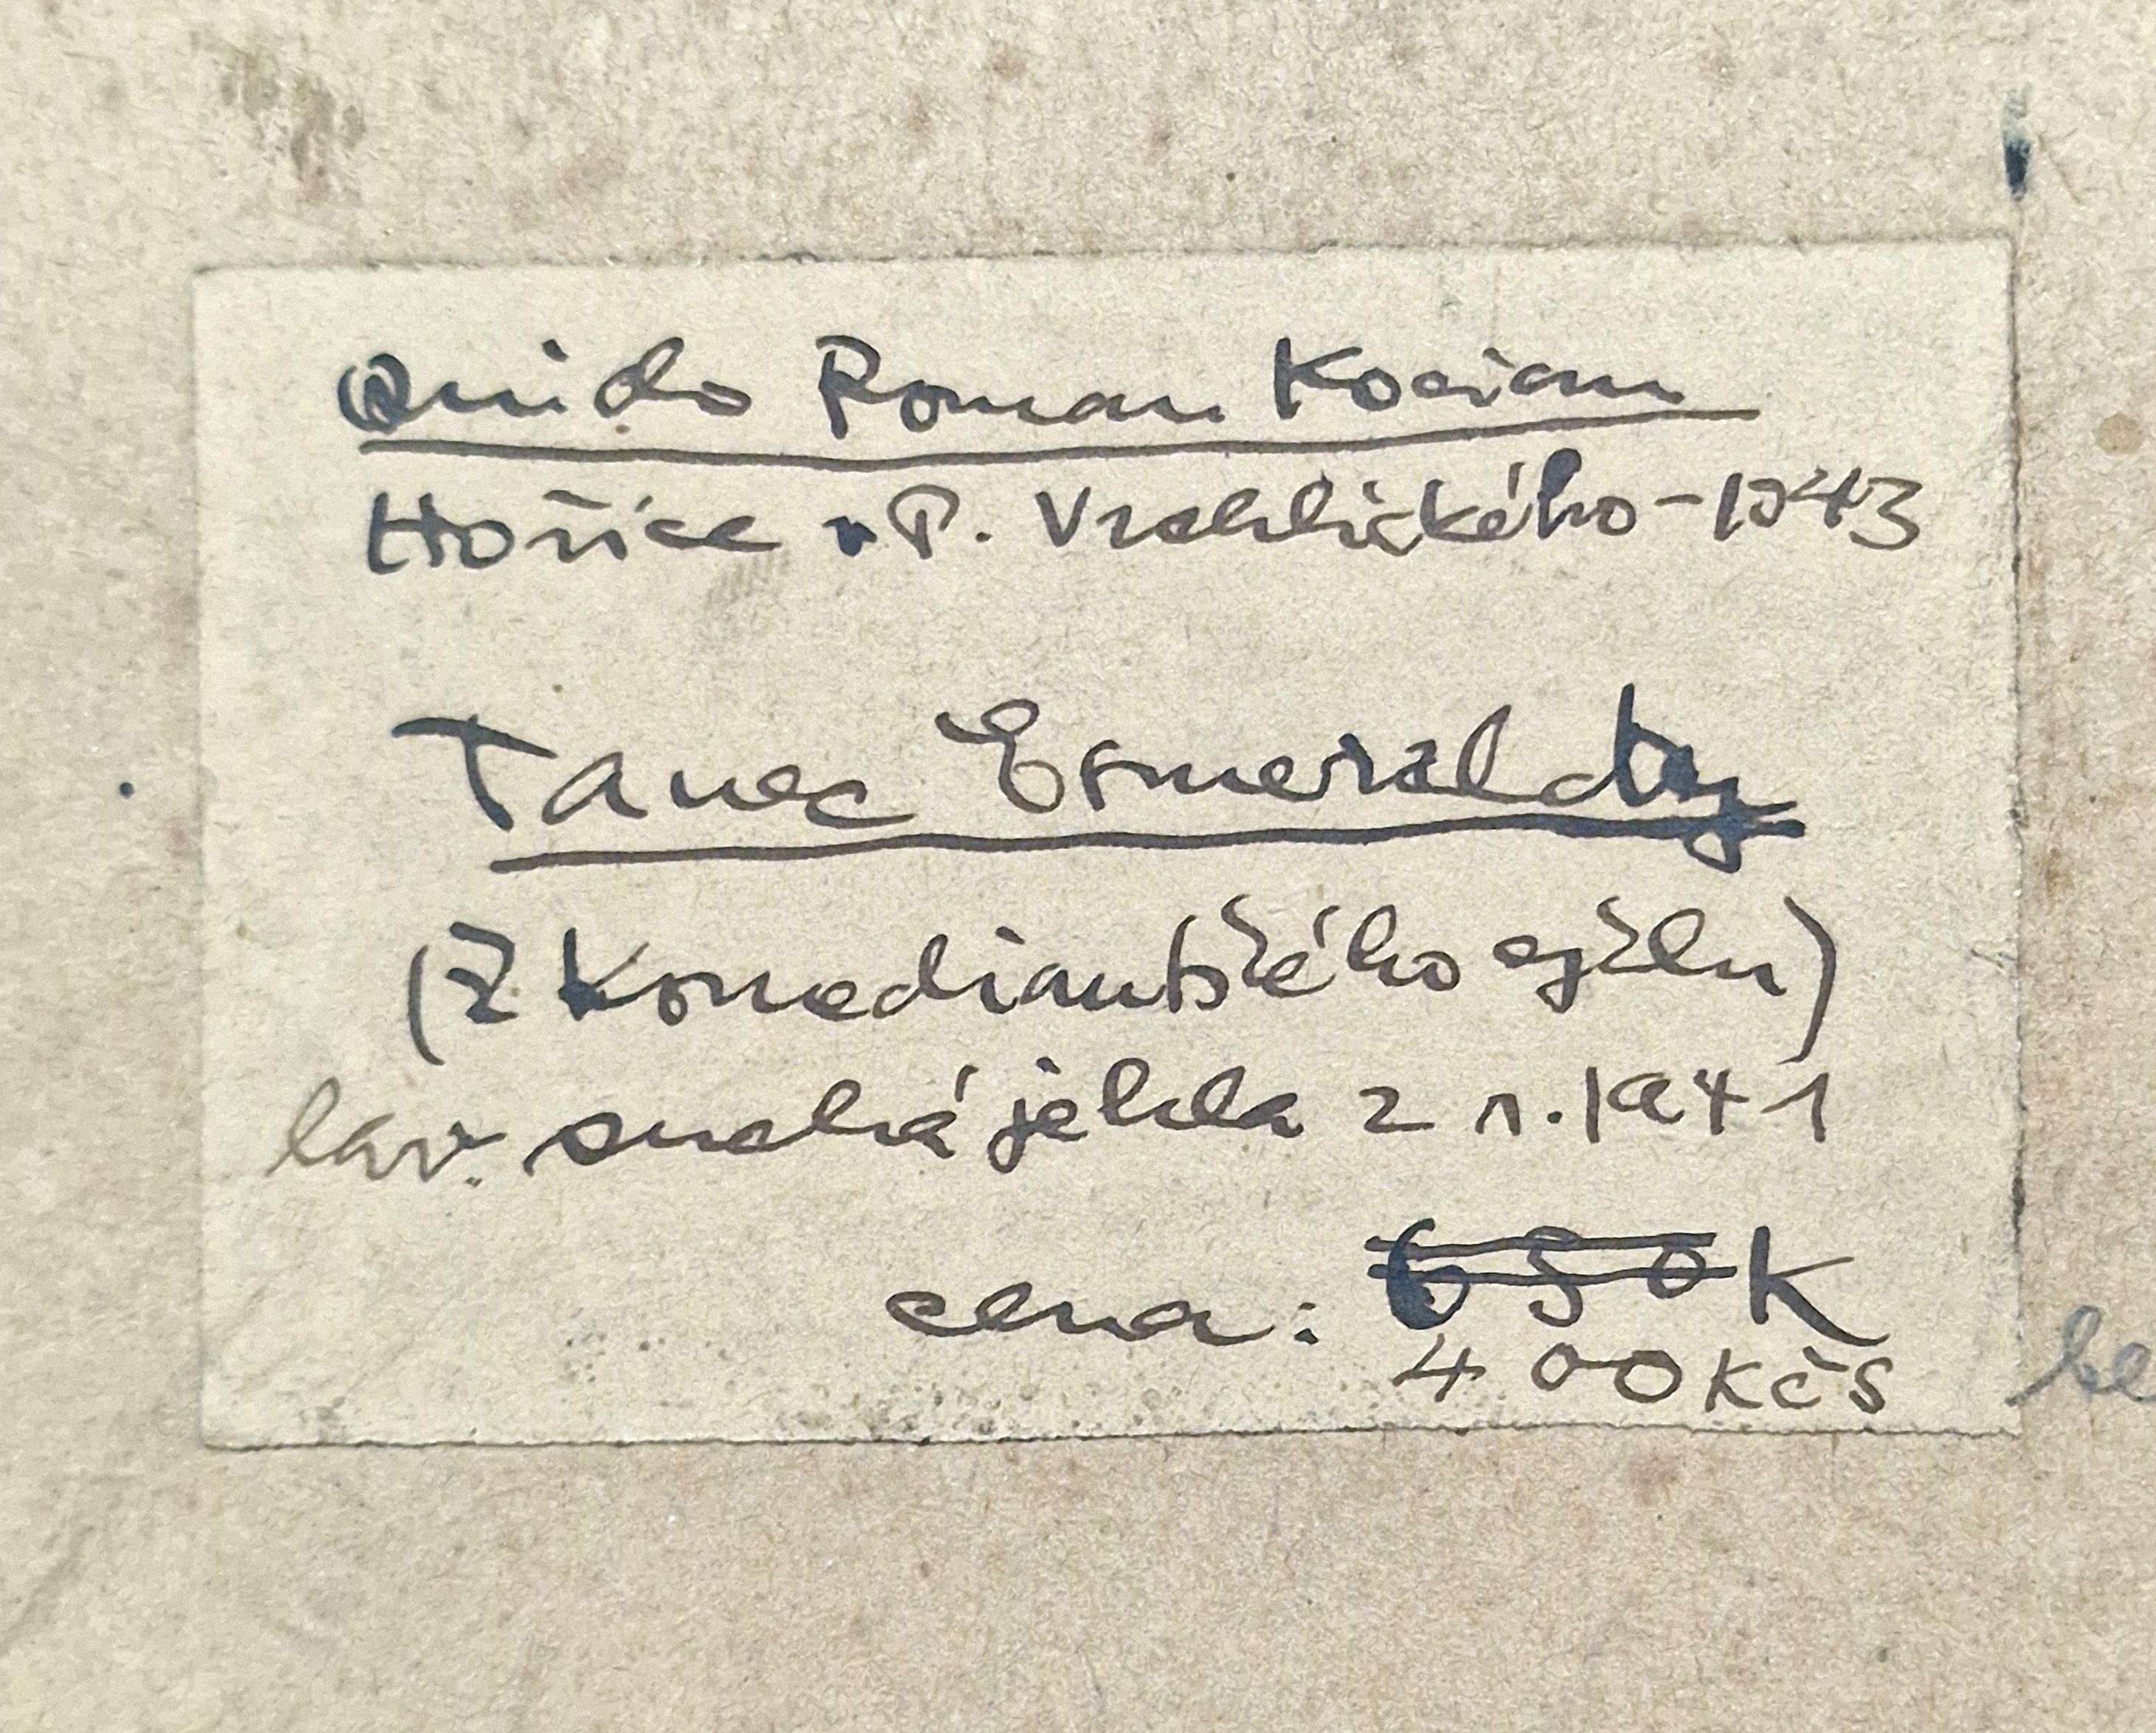 Quido Roman Kocian
Hořice v P. Vrchlického - 1243
Tanec Esmeraldy
(Z Komediantského cyklu)
lav. suchá jehla z r. 1941
cena: 650 K
400 Kčs
be